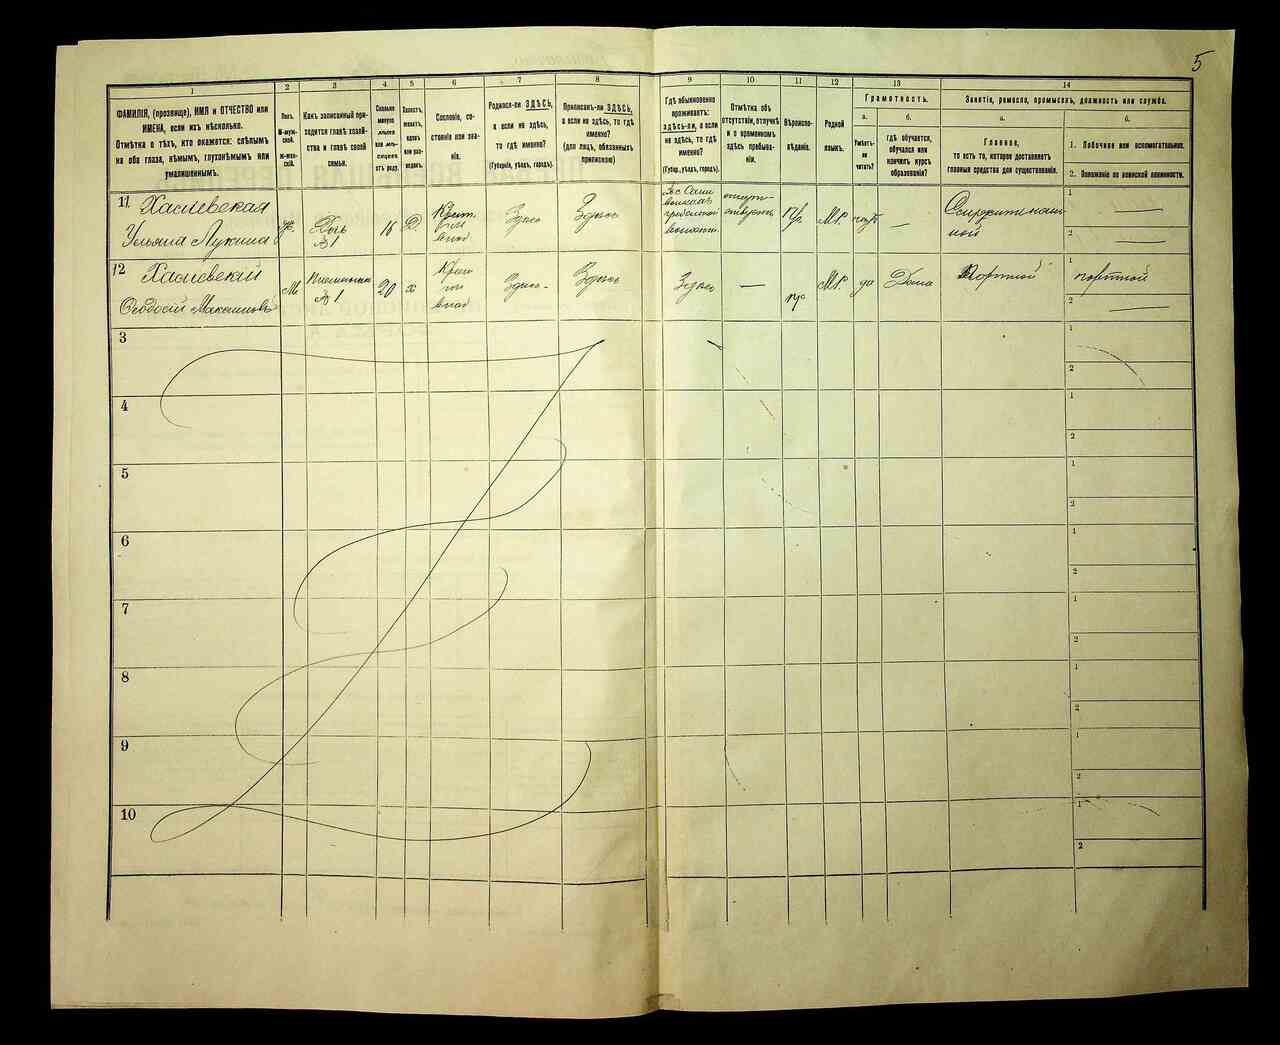 5
1
2
3
4
5
6
7
8
9
10
11
12
13
14
ФАМИЛІЯ, (прозвище), ИМЯ и ОТЧЕСТВО или
ИМЕНА, если ихъ нѣсколько.
Отмѣтка о тѣхъ, кто окажется: слѣпымъ
на оба глаза, нѣмымъ, глухонѣмымъ или
умалишеннымъ.
Полъ.
М-муж-
ской.
Ж-жен-
скій.
Какъ записанный при-
ходится главѣ хозяй-
ства и главѣ своей
семьи.
Сколько
минуло
лѣтъ
или мѣ-
сяцевъ
отъ роду.
Холостъ,
женатъ,
вдовъ
или раз-
веденъ.
Сословіе, со-
стояніе или зва-
ніе.
Родился-ли ЗДѢСЬ,
а если не здѣсь,
то гдѣ именно?
(Губернія, уѣздъ, городъ).
Приписанъ-ли ЗДѢСЬ,
а если не здѣсь, то гдѣ
именно?
(для лицъ, обязанныхъ
припискою)
Гдѣ обыкновенно
проживаетъ:
здѣсь-ли, а если
не здѣсь, то гдѣ
именно?
(Губер., уѣздъ, городъ).
Отмѣтка объ
отсутствіи, отлучкѣ
и о временномъ
здѣсь пребыва-
ніи.
Вѣроиспо-
вѣданіе.
Родной
языкъ.
Грамотность.
а.
б.
Умѣетъ-
ли
читать?
гдѣ обучается,
обучался или
кончилъ курсъ
образованія?
Занятіе, ремесло, промыселъ, должность или служба.
а.
б.
Главное,
то есть то, которое доставляетъ
главныя средства для существованія.
1. Побочное или вспомогательное.
2. Положеніе по воинской повинности.
11
Хасиевская
Ульяна Лукина
ж.
Дочь
№1
16
Д.
Крест.
Здѣсь
Здѣсь
отсут-
ствуетъ
Пр.
МР
—
1 —
2 —
12
Хасиевскій
Ѳеодосій
М
Племянникъ
№1
20
х
Здѣсь
Здѣсь
Здѣсь
—
МР
да
Дома
Портной
1 портной
2 —
3
1
2
4
1
2
5
1
2
6
1
2
7
1
2
8
1
2
9
1
2
10
1
2